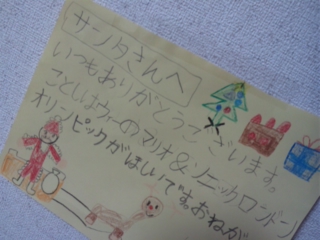 サンタさんへ
いつもありがとうございます。
ことしはウィーのマリオ&ソニックロンドン
オリンピックがほしいです。おねが